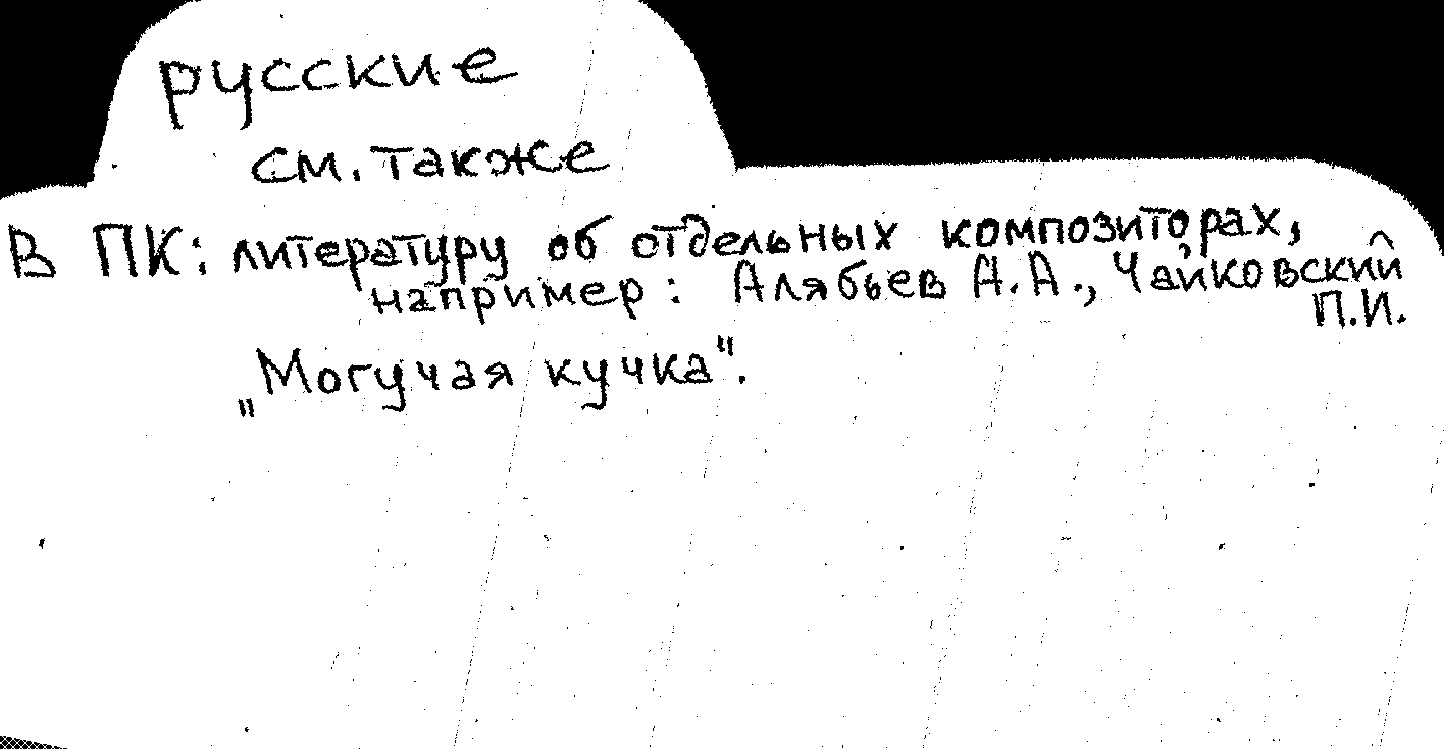 русские
см. также
В ПК: литературу об отдельных композиторах,
например: Алябьев А.А., Чайковский
П.И.
„Могучая кучка".